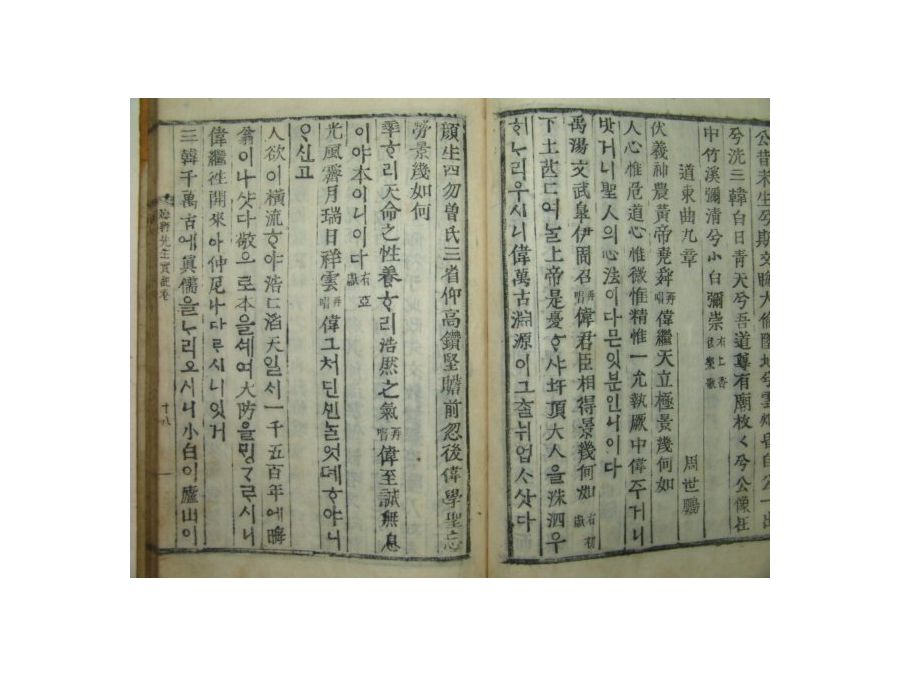 公昔未生兮斯文晦大倫墜地兮雲如昏自公一出
兮洗三韓白日靑天兮吾道尊有廟枚〻兮公像在
中竹溪彌淸兮小白彌崇 右上香後樂歌
道東曲九章 周世鵬
伏羲神農黃帝堯舜 再唱 偉繼天立極景幾何如
人心惟危道心惟微惟精惟一允執厥中偉주거니
밧거니聖人의心法이다믄잇분인니이다
禹湯文武皐伊周召 再唱 偉君臣相得景幾何如 右初獻
下土茫ㄷ여ᄂᆞᆯ上帝是憂ᄒᆞ샤圩頂大人을洙泗우
히ᄂᆞ리우시니偉萬古淵源이그츨뉘업ᄉᆞ샷다
顔生四勿曾氏三省仰高鑽堅瞻前忽後偉學聖忘
勞景幾如何
率ᄒᆞ리天命之性養ᄒᆞ리浩然之氣 再唱 偉至誠無息
이야本이니이다 右亞獻
光風霽月瑞日祥雲 再唱 偉그처딘
ᄋᆞ신고
人欲이橫流ᄒᆞ야浩〻滔天일ᄉᆡ一千五百年에晦
翁이나샷다敬으로本을셰여大防을ᄆᆡᇰᄀᆞᄅᆞ시니
偉繼往開來아仲尼나다ᄅᆞ시니잇거
三韓千萬古애眞儒을ᄂᆞ리오시니小白이廬山이
晦軒先生實記卷 十八